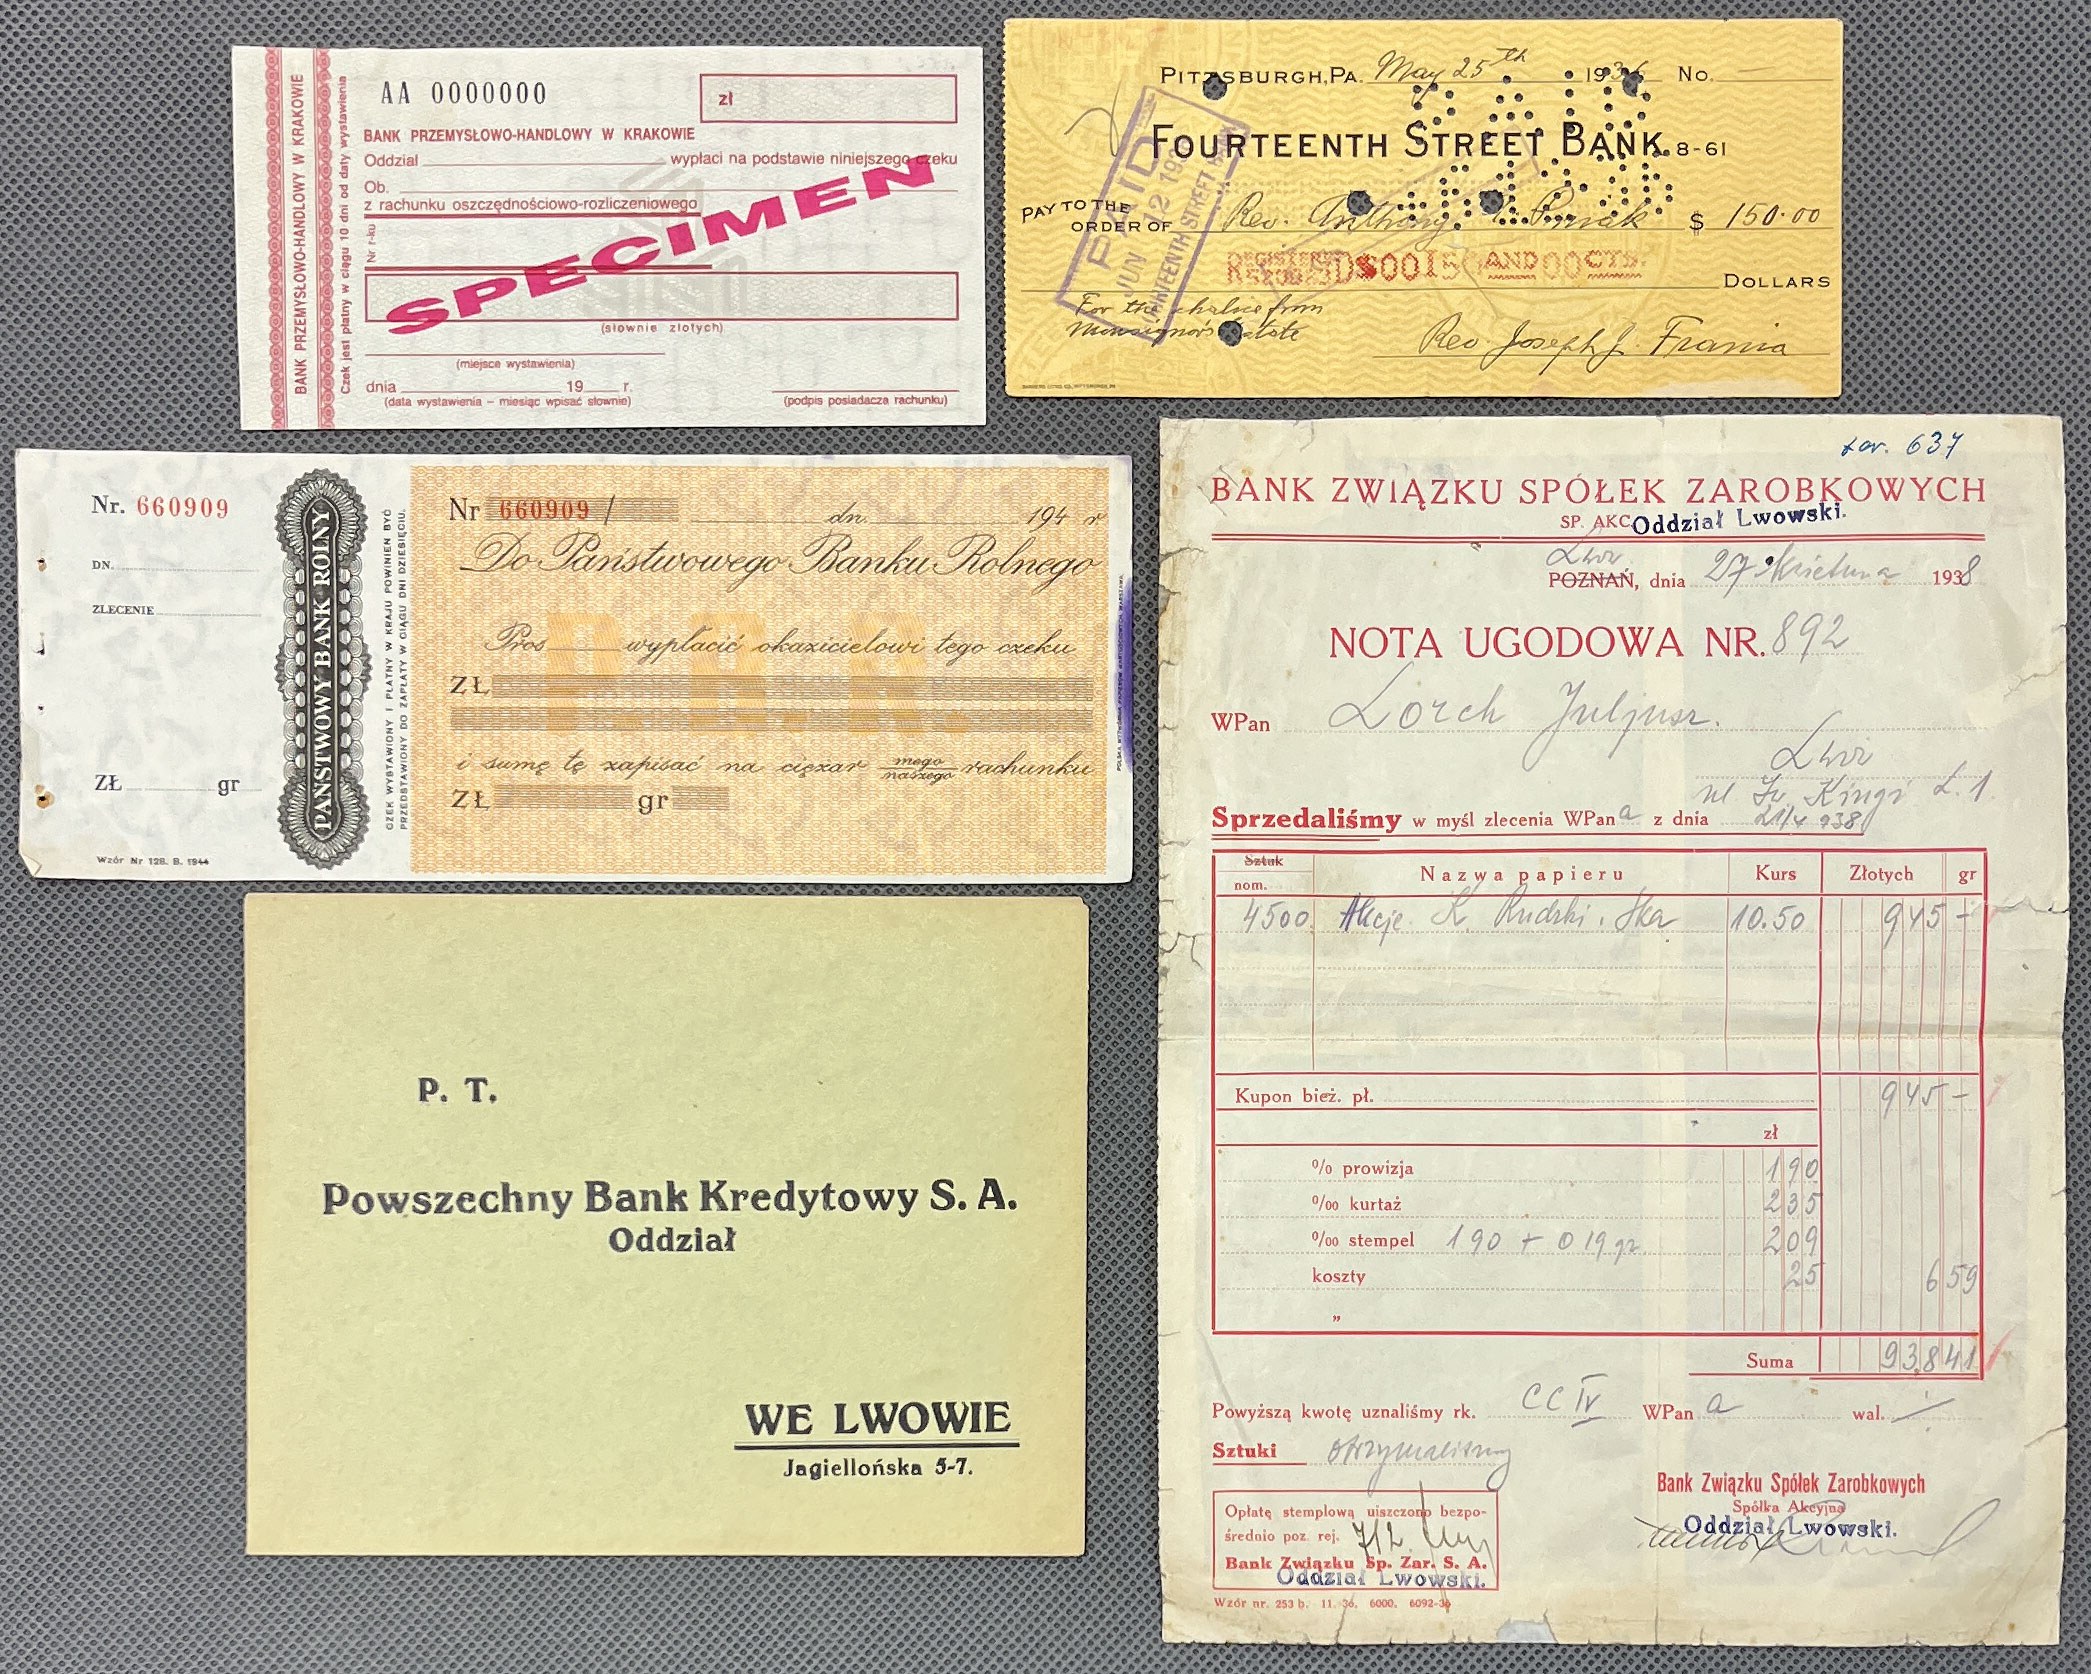 BANK PRZEMYSŁOWO-HANDLOWY W KRAKOWIE
Czek jest płatny w ciągu 10 dni od daty wystawienia
AA 0000000
zł
BANK PRZEMYSŁOWO-HANDLOWY W KRAKOWIE
Oddział wypłaci na podstawie niniejszego czeku
Ob.
z rachunku oszczędnościowo-rozliczeniowego
Nr r-ku
SPECIMEN
(słownie złotych)
(miejsce wystawienia)
dnia 19 r.
(data wystawienia – miesiąc wpisać słownie) (podpis posiadacza rachunku)
PITTSBURGH, PA. May 25th 1936 No.
FOURTEENTH STREET BANK 8-61
PAY TO THE
ORDER OF Rev. Anthony Pmiak $ 150.00
PAID
JUN 12 193
FOURTEENTH STREET BANK
REGISTERED
DOLLARS
For the chalice from
Monsignor's Estate
Rev. Joseph J. Frania
Nr. 660909
DN.
ZLECENIE
ZŁ gr
Wzór Nr 128. B. 1944
PAŃSTWOWY BANK ROLNY
CZEK WYSTAWIONY I PŁATNY W KRAJU POWINIEN BYĆ
PRZEDSTAWIONY DO ZAPŁATY W CIĄGU DNI DZIESIĘCIU.
Nr 660909 /
dn. 194 r
Do Państwowego Banku Rolnego
P.B.R.
Pros wypłacić okazicielowi tego czeku
ZŁ
i sumę tę zapisać na ciężar mego/naszego rachunku
ZŁ gr
P. T.
Powszechny Bank Kredytowy S. A.
Oddział
WE LWOWIE
Jagiellońska 5-7.
637
BANK ZWIĄZKU SPÓŁEK ZAROBKOWYCH
SP. AKC. Oddział Lwowski.
Lwów
POZNAŃ, dnia 27 kwietnia 1938
NOTA UGODOWA NR. 892
WPan Lorch Juljusz.
Lwów
ul Kingi L. 1.
Sprzedaliśmy w myśl zlecenia WPana z dnia 21/4 938
Sztuk
nom. Nazwa papieru Kurs Złotych gr
4500 Akcje K. Rudzki i Ska 10.50 945 –
Kupon bież. pł. 945 –
zł
% prowizja 190
‰ kurtaż 235
‰ stempel 190 + 019 gr 209
koszty 25 659
„
Suma 93841
Powyższą kwotę uznaliśmy rk. CC IV WPana wal.
Sztuki otrzymaliśmy
Bank Związku Spółek Zarobkowych
Spółka Akcyjna
Oddział Lwowski.
Opłatę stemplową uiszczono bezpo-
średnio poz. rej. 712
Bank Związku Sp. Zar. S. A.
Oddział Lwowski.
Wzór nr. 253 b. 11. 36. 6000. 6092-36